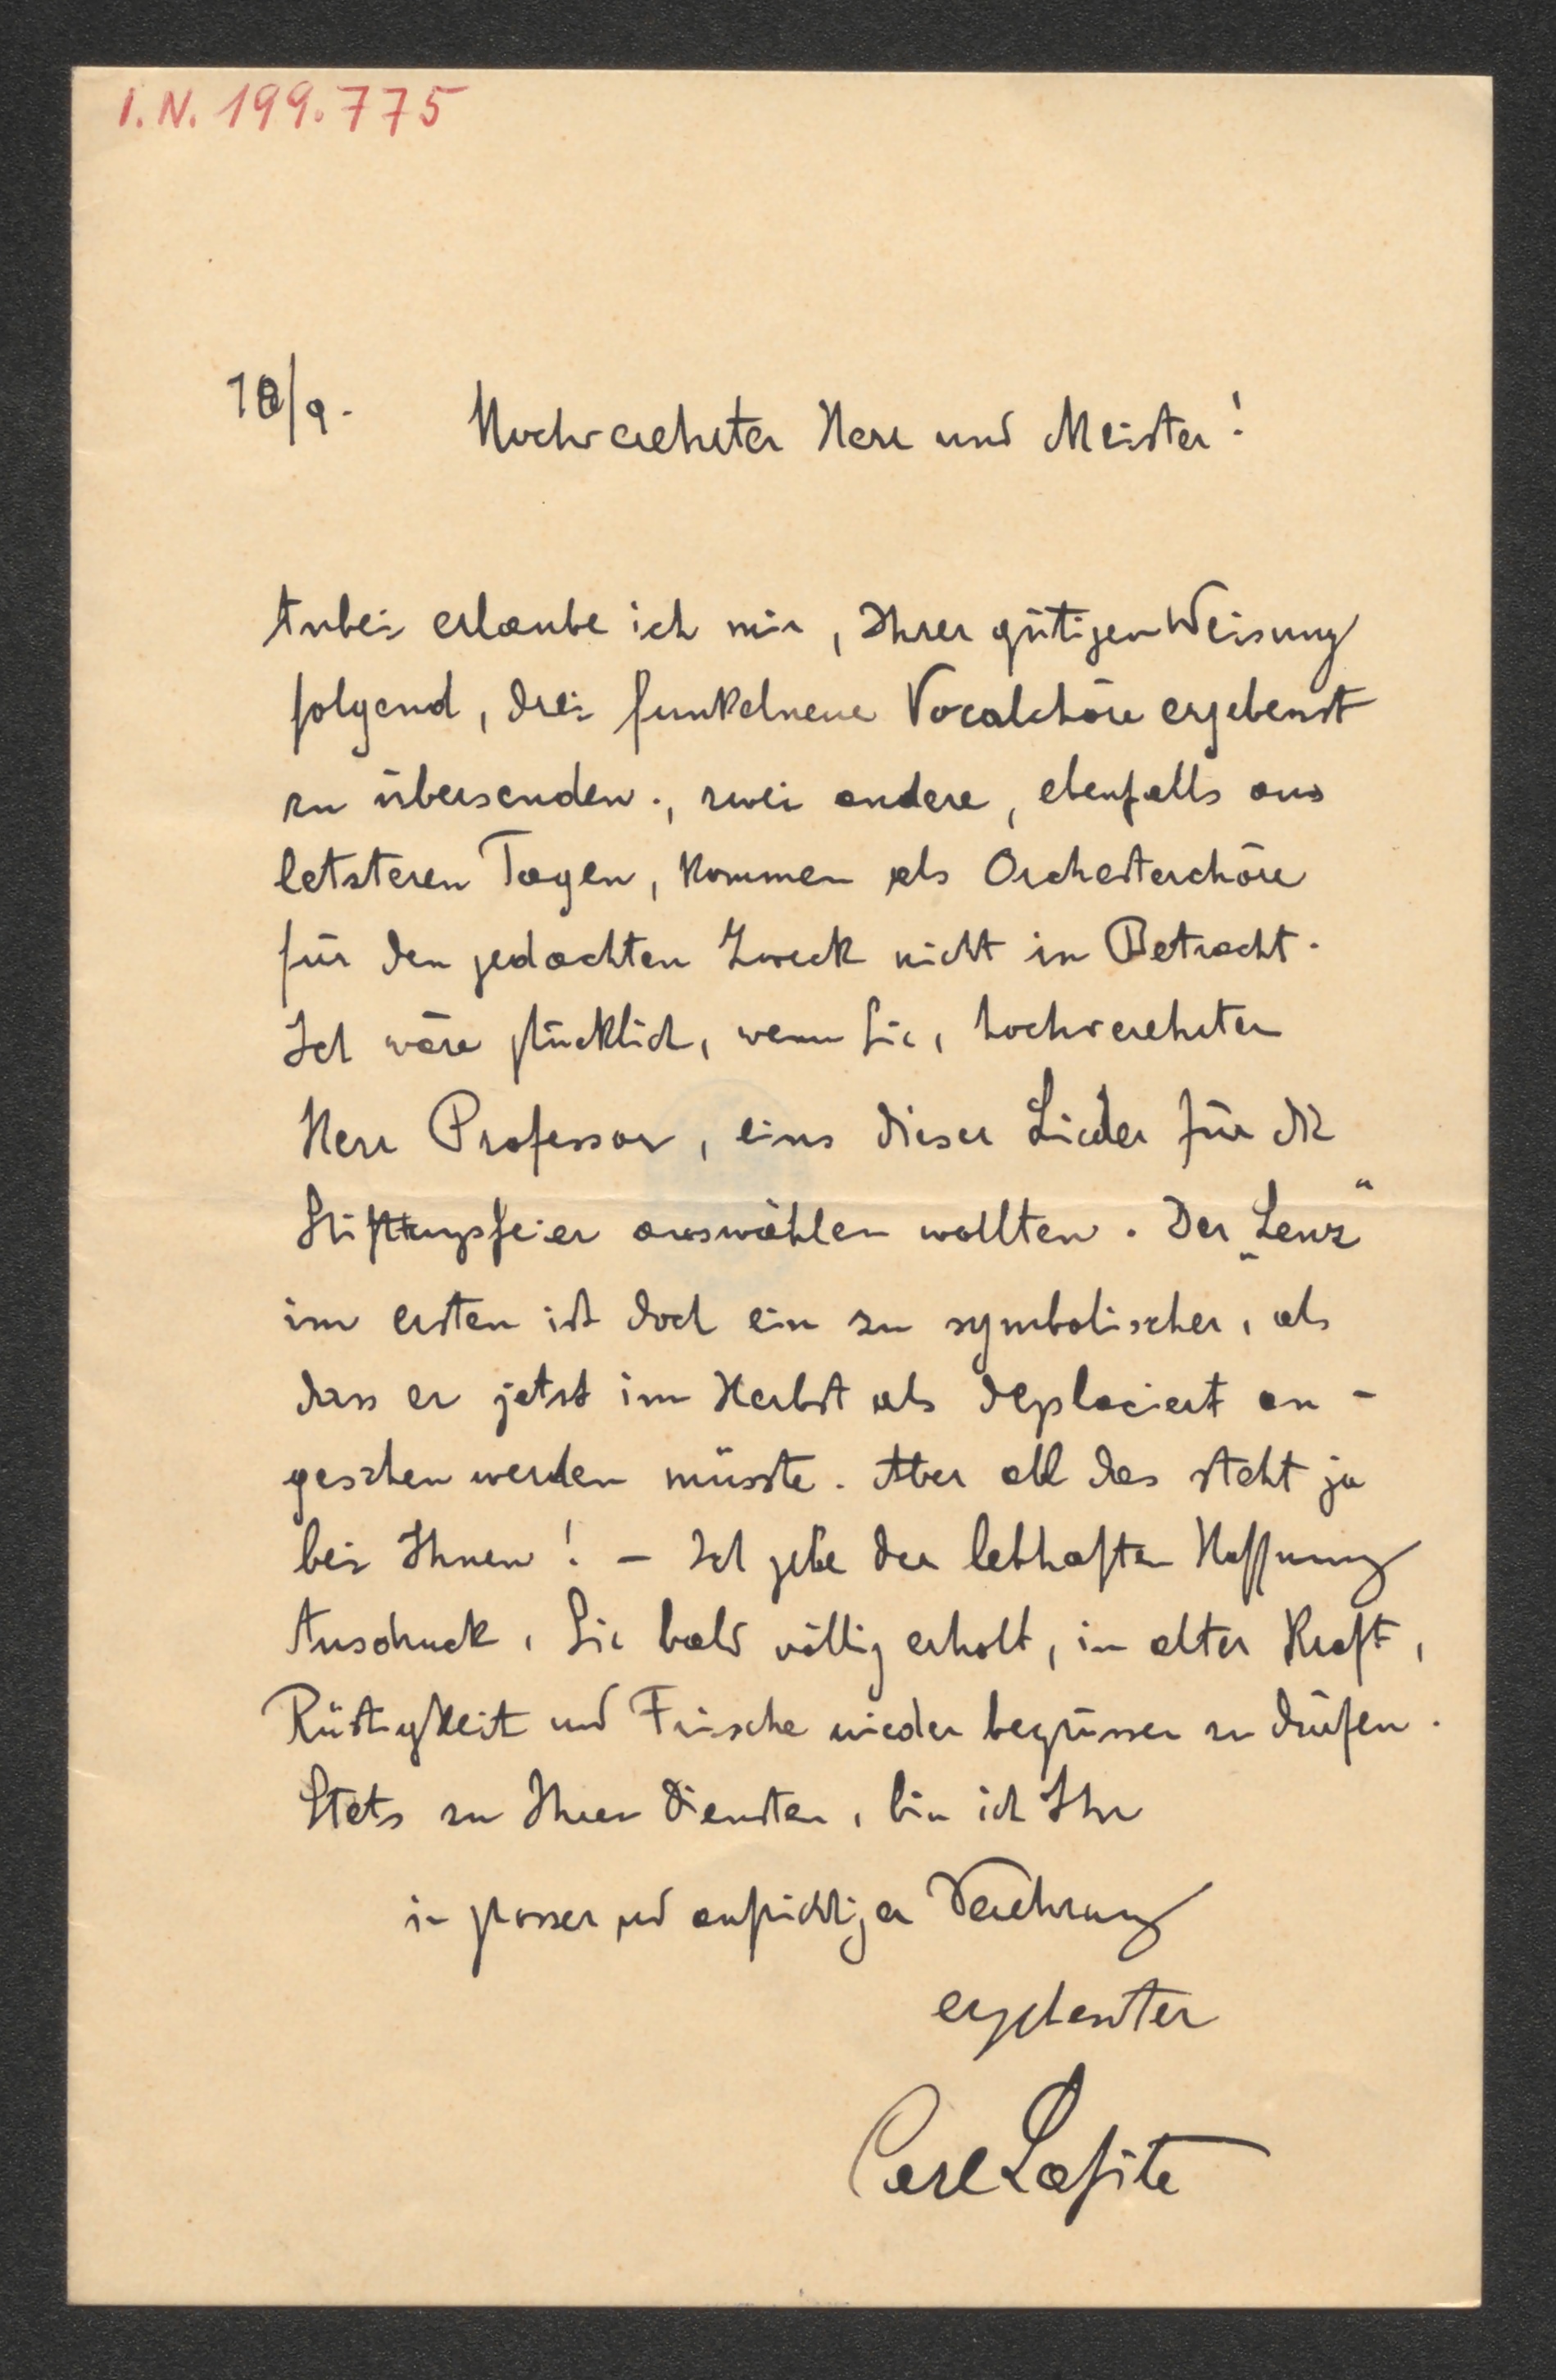 I.N. 199.775
18/9.
Hochverehrter Herr und Meister!
Anbei erlaube ich mir, Ihrer gütigen Weisung
folgend, drei funkelneue Vocalchöre ergebenst
zu übersenden., zwei andere, ebenfalls aus
letzteren Tagen, kommen als Orchesterchöre
für den gedachten Zweck nicht in Betracht.
Ich wäre glücklich, wenn Sie, hochverehrter
Herr Professor, eins dieser Lieder für die
Stiftungsfeier auswählen wollten. Der „Lenz“
im ersten ist doch ein zu symbolischer, als
dass er jetzt im Herbst als deplaciert an-
gesehen werden müsste. Aber all das steht ja
bei Ihnen! – Ich gebe der lebhaften Hoffnung
Ausdruck, Sie bald völlig erholt, in alter Kraft,
Rüstigkeit und Frische wieder begrüssen zu dürfen.
Stets zu Ihren Diensten, bin ich Ihr
in grosser und aufrichtiger Verehrung
ergebenster
Carl Lafite